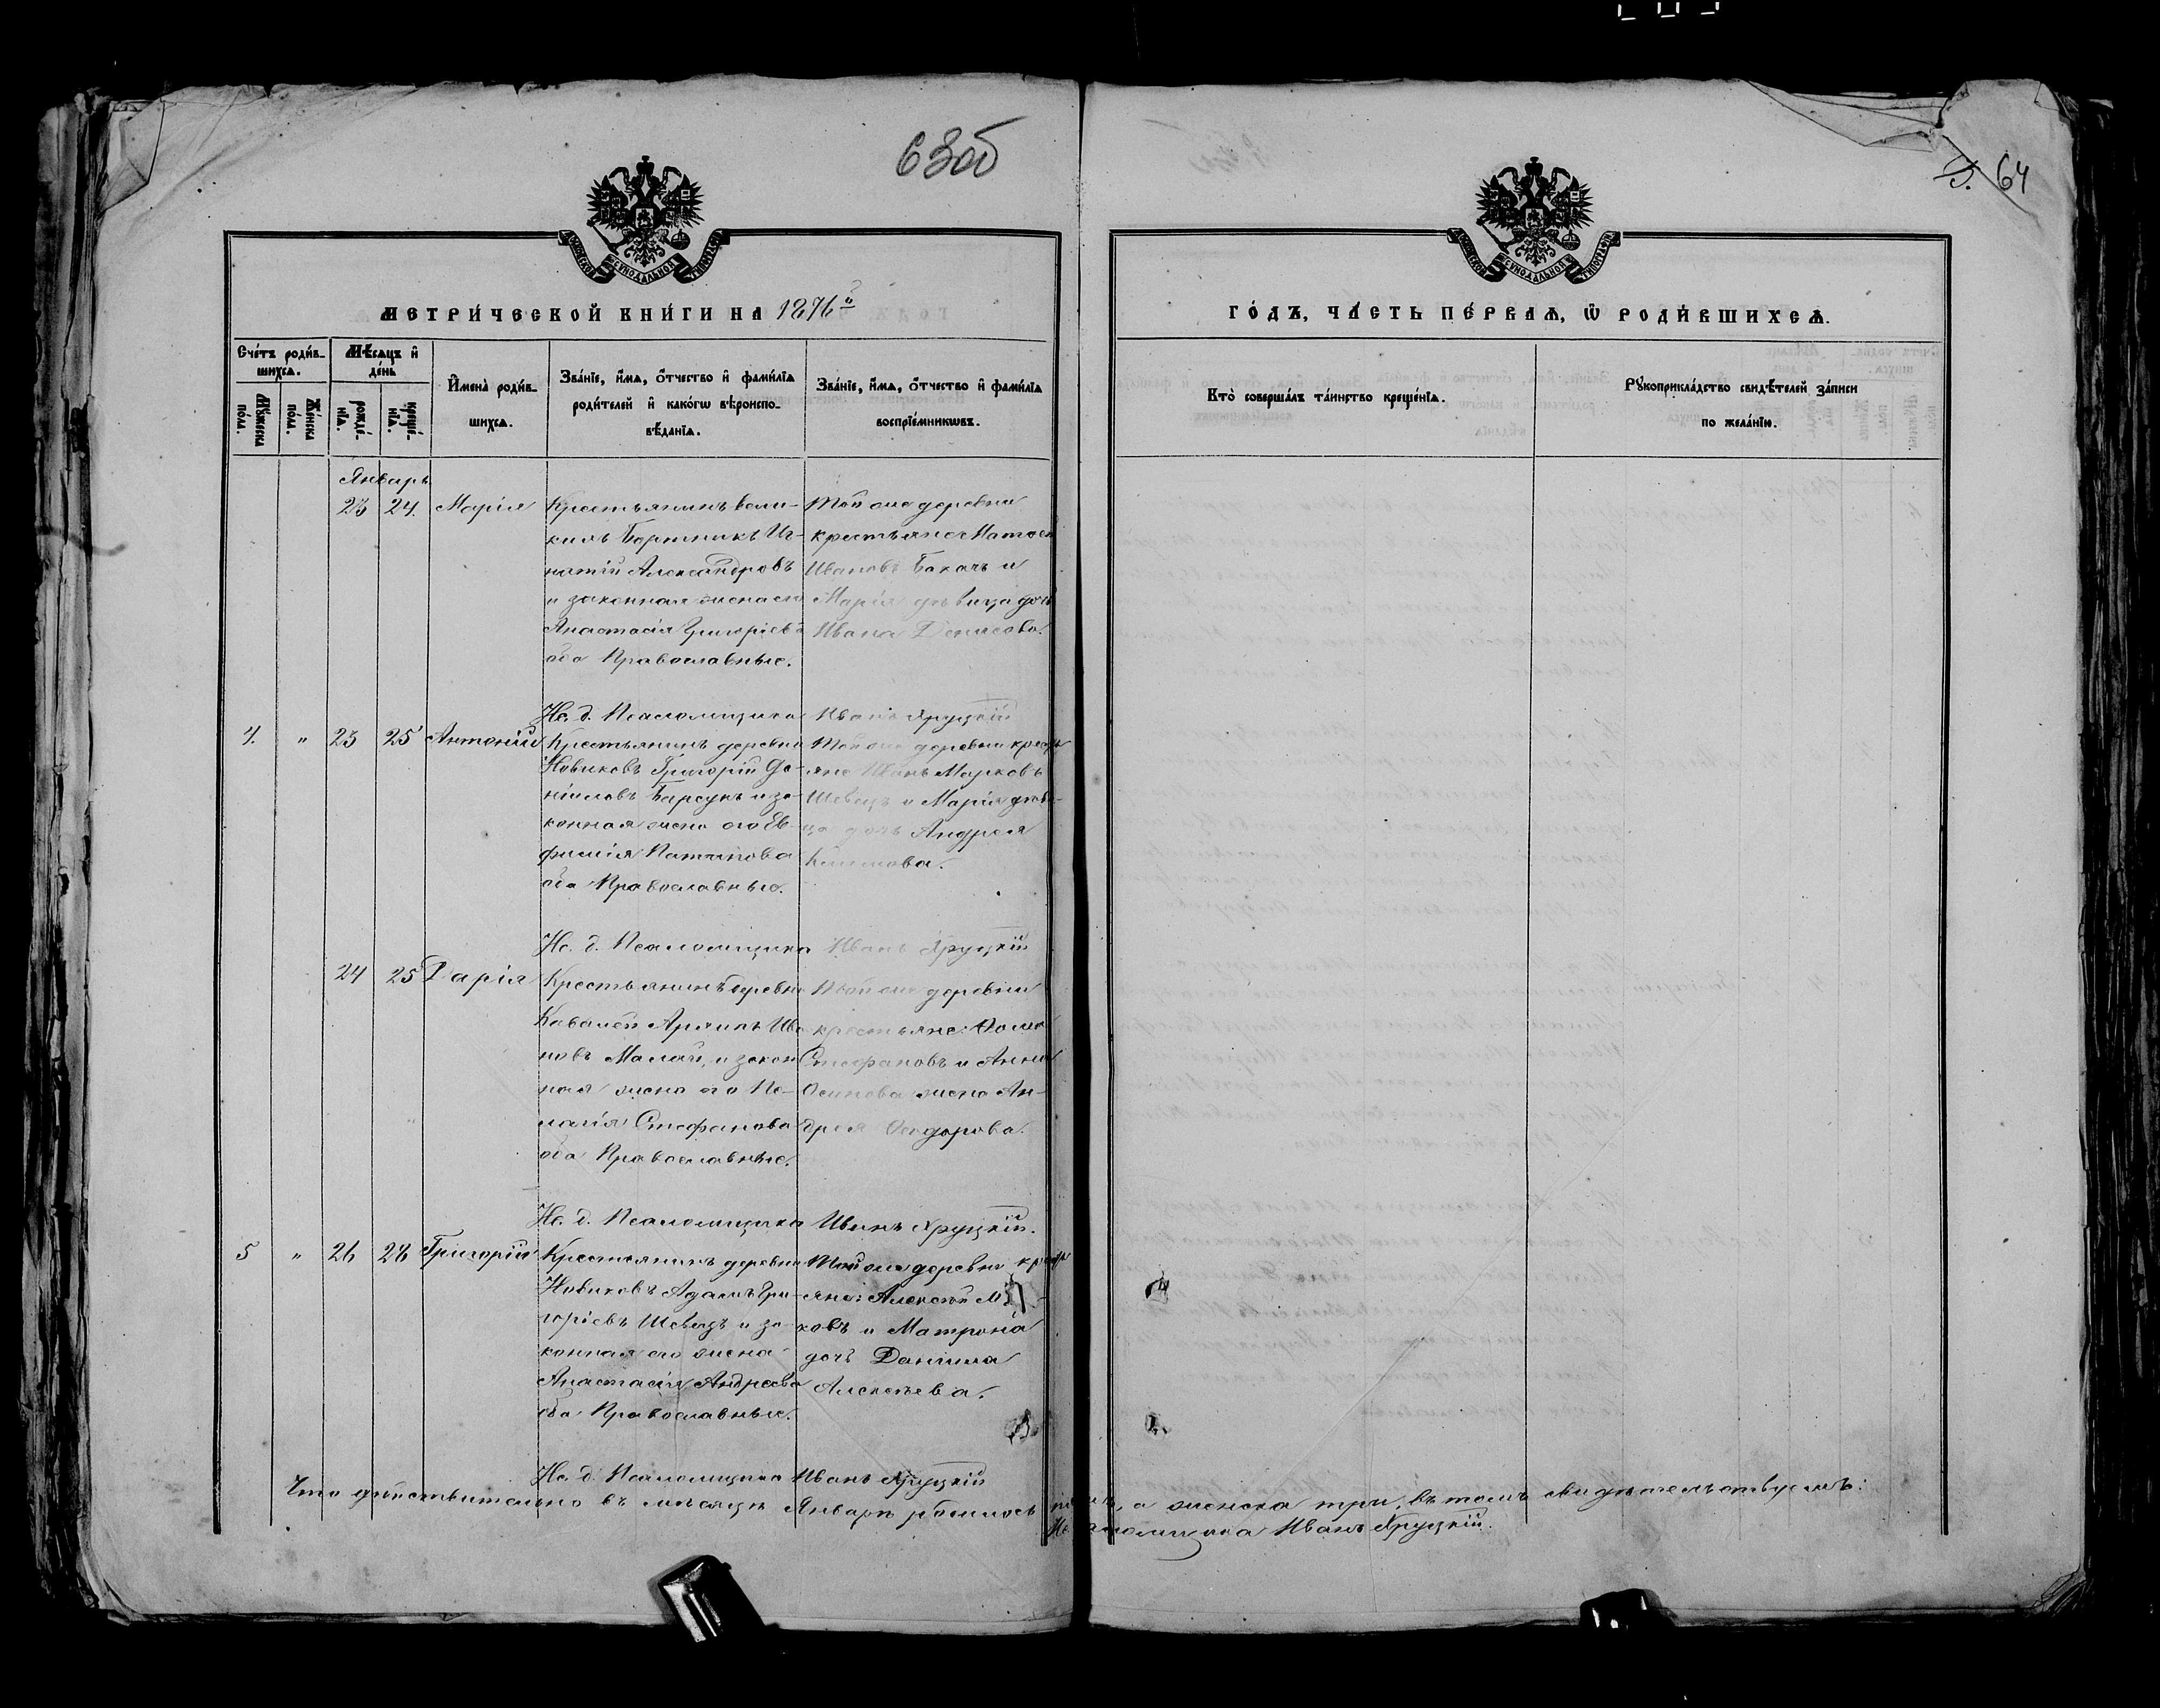 63об
64
МОСКОВСКОЙ СѴНОДАЛЬНОЙ ТИПОГРАФІИ
МОСКОВСКОЙ СѴНОДАЛЬНОЙ ТИПОГРАФІИ
МЕТРИ́ЧЕСКОЙ КНИ́ГИ НА 1876й
ГО́ДЪ, ЧА́СТЬ ПЕ́РВАѦ, Ѡ РОДИ́ВШИХСѦ.
Сче́тъ роди́в-
шихсѧ.
Му́жеска по́ла.
Же́нска по́ла.
Мѣ́сяцъ и҆ де́нь
рожде́-
нїѧ.
креще́-
нїѧ.
И҆мена̀ роди́в-
шихсѧ.
Зва́нїе, и҆́мѧ, ѻ҆́тчество и҆ фами́лїѧ
роди́телей и҆ како́гѡ вѣроиспо-
вѣ́данїѧ.
Зва́нїе, и҆́мѧ, ѻ҆́тчество и҆ фами́лїѧ
воспрїе́мникѡвъ.
Кто̀ соверша́лъ та́инство креще́нїѧ.
Рꙋкоприкла́дство свидѣ́телей за́писи
по жела́нїю.
Январь
23 24. Марія
Крестьянинъ вели-
кихъ Бортникъ Иг-
натій Александровъ
и законная жена его
Анастасія Григоріева
оба Православные.
Той же деревни
крестьяне: Матвей
Ивановъ Бокачъ и
Марія дѣвица дочь
Ивана Денисова.
Ис. д. Псаломщика Иванъ Хруцкій
4. " 23 25 Антоній
Крестьянинъ деревни
Новиковъ Григорій Да-
ніиловъ Барсукъ и за-
конная жена его Ев-
фимія Потапова
оба Православные.
Той же деревни кресть
яне Иванъ Марковъ
Шевецъ и Марія дѣви-
ца дочь Андрея
Климова.
Ис. д. Псаломщика Иванъ Хруцкій
24 25 Дарія
Крестьянинъ деревни
Ковалей Архипъ Ива
новъ Малай, и закон
ная жена его Пе-
лагія Стефанова
оба Православные.
Той же деревни
крестьяне: Фома
Стефановъ и Анна
Осипова жена Ан-
дрея Феодорова.
Ис. д. Псаломщика Иванъ Хруцкій.
5 " 26 28 Григорій
Крестьянинъ деревни
Новиковъ Адамъ Гри-
горіевъ Шевецъ и за-
конная его жена
Анастасія Андреева
оба Православные.
Той же деревни кресть
яне: Алексѣй
ковъ и Матрона
дочь Даніила
Алексѣева.
Ис. д. Псаломщика Иванъ Хруцкій
Что дѣйствительно въ мѣсяцѣ Январѣ родилось а женска три, въ томъ свидѣтельствуемъ:
Псаломщика Иванъ Хруцкій.